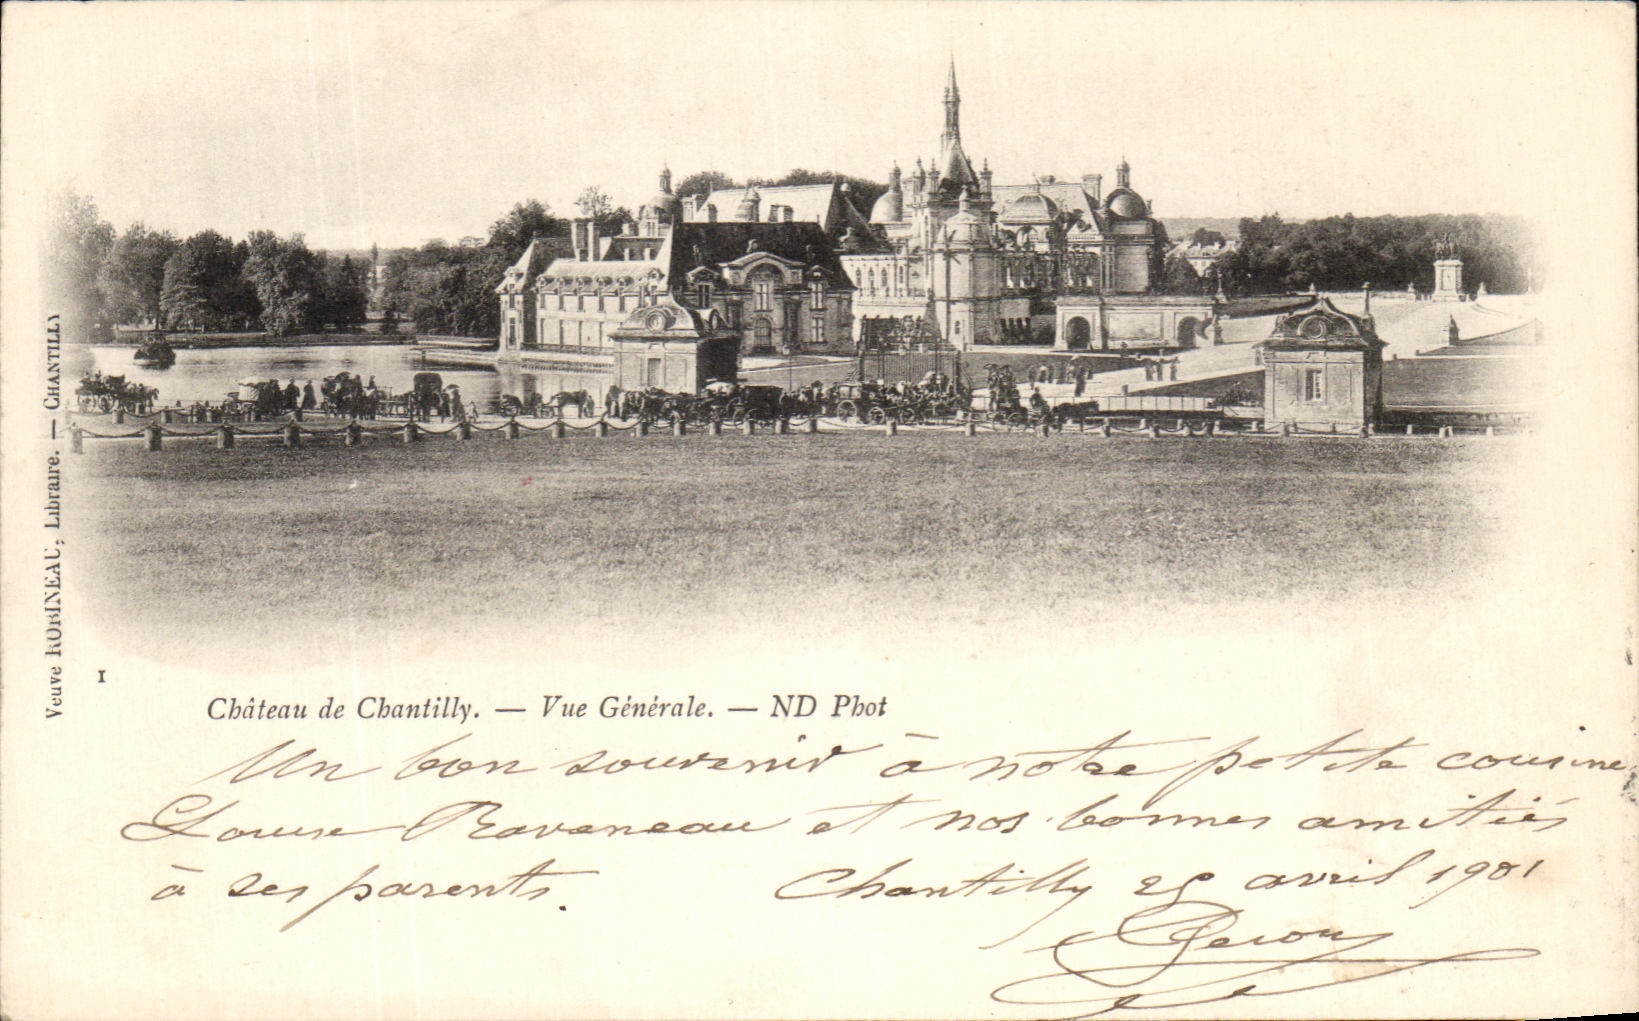 Veuve ROBINEAU, Libraire. — CHANTILLY
1
Château de Chantilly. — Vue Générale. — ND Phot
Un bon souvenir à notre petite cousine
Louise Raveneau et nos bonnes amitiés
à ses parents. Chantilly 25 avril 1901